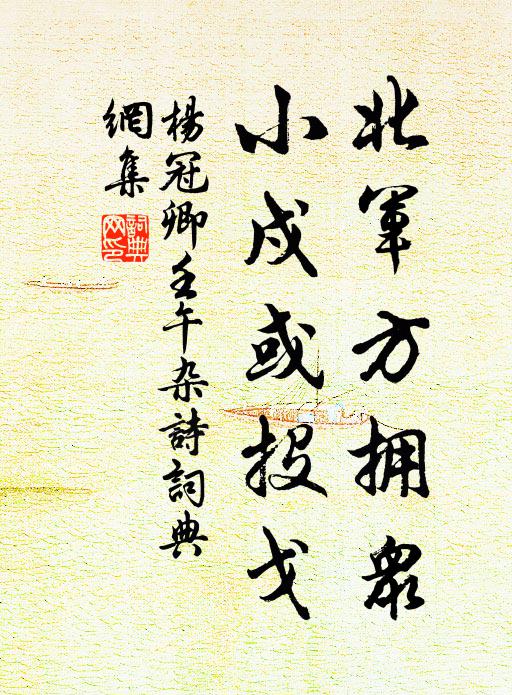 北軍方拥衆
小戍或投戈
楊冠卿壬午杂詩詞典
網集
詞典網印